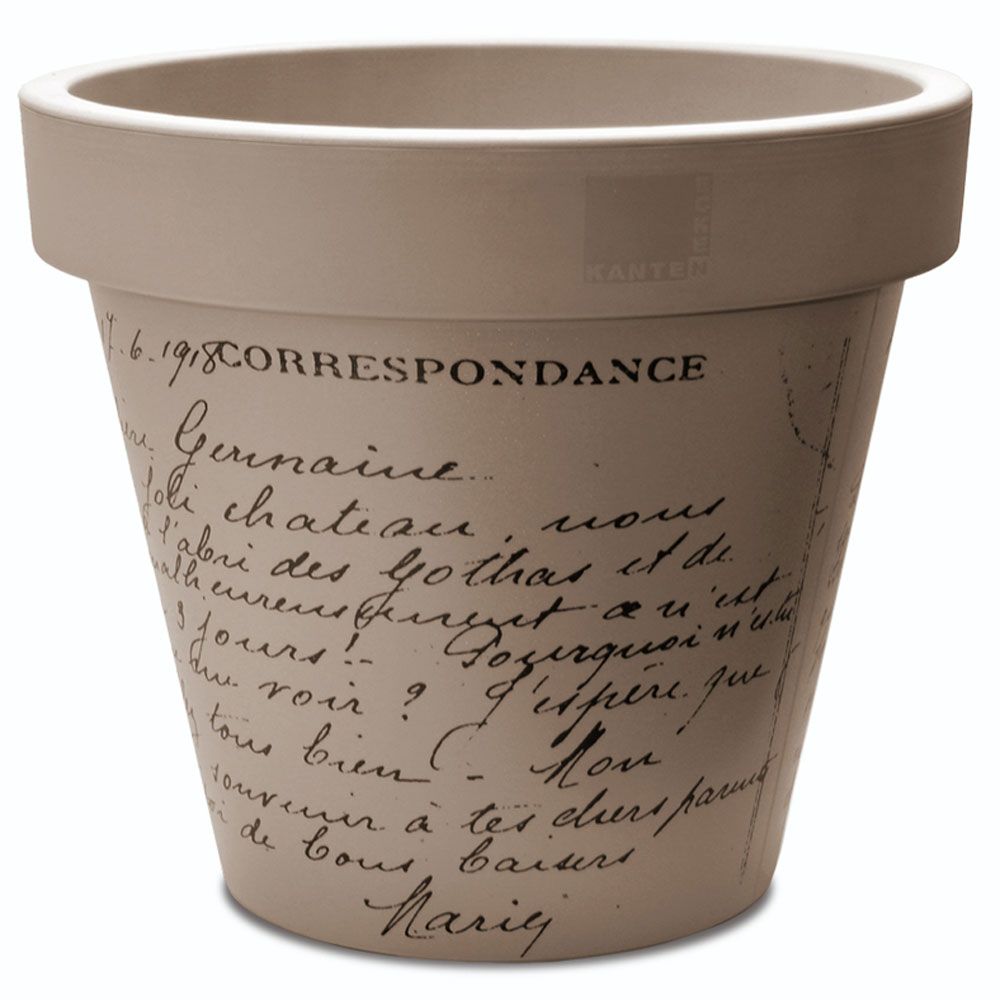 KANTENZERUN
17-6-1918 CORRESPONDANCE
Germaine
Joli chateau, nous
à l'abri des Gothas et de
malheureusement ce n'est
3 jours! - Pourquoi n'es tu
me voir ? J'espère que
tous bien - Mon
souvenir à tes chers parents
de bons baisers